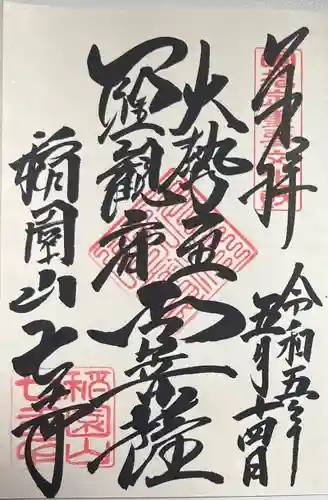 奉拝
令和五年
五月十四日
大勢至
聖觀音
両菩薩
稲園山七寺
稲園山
七寺